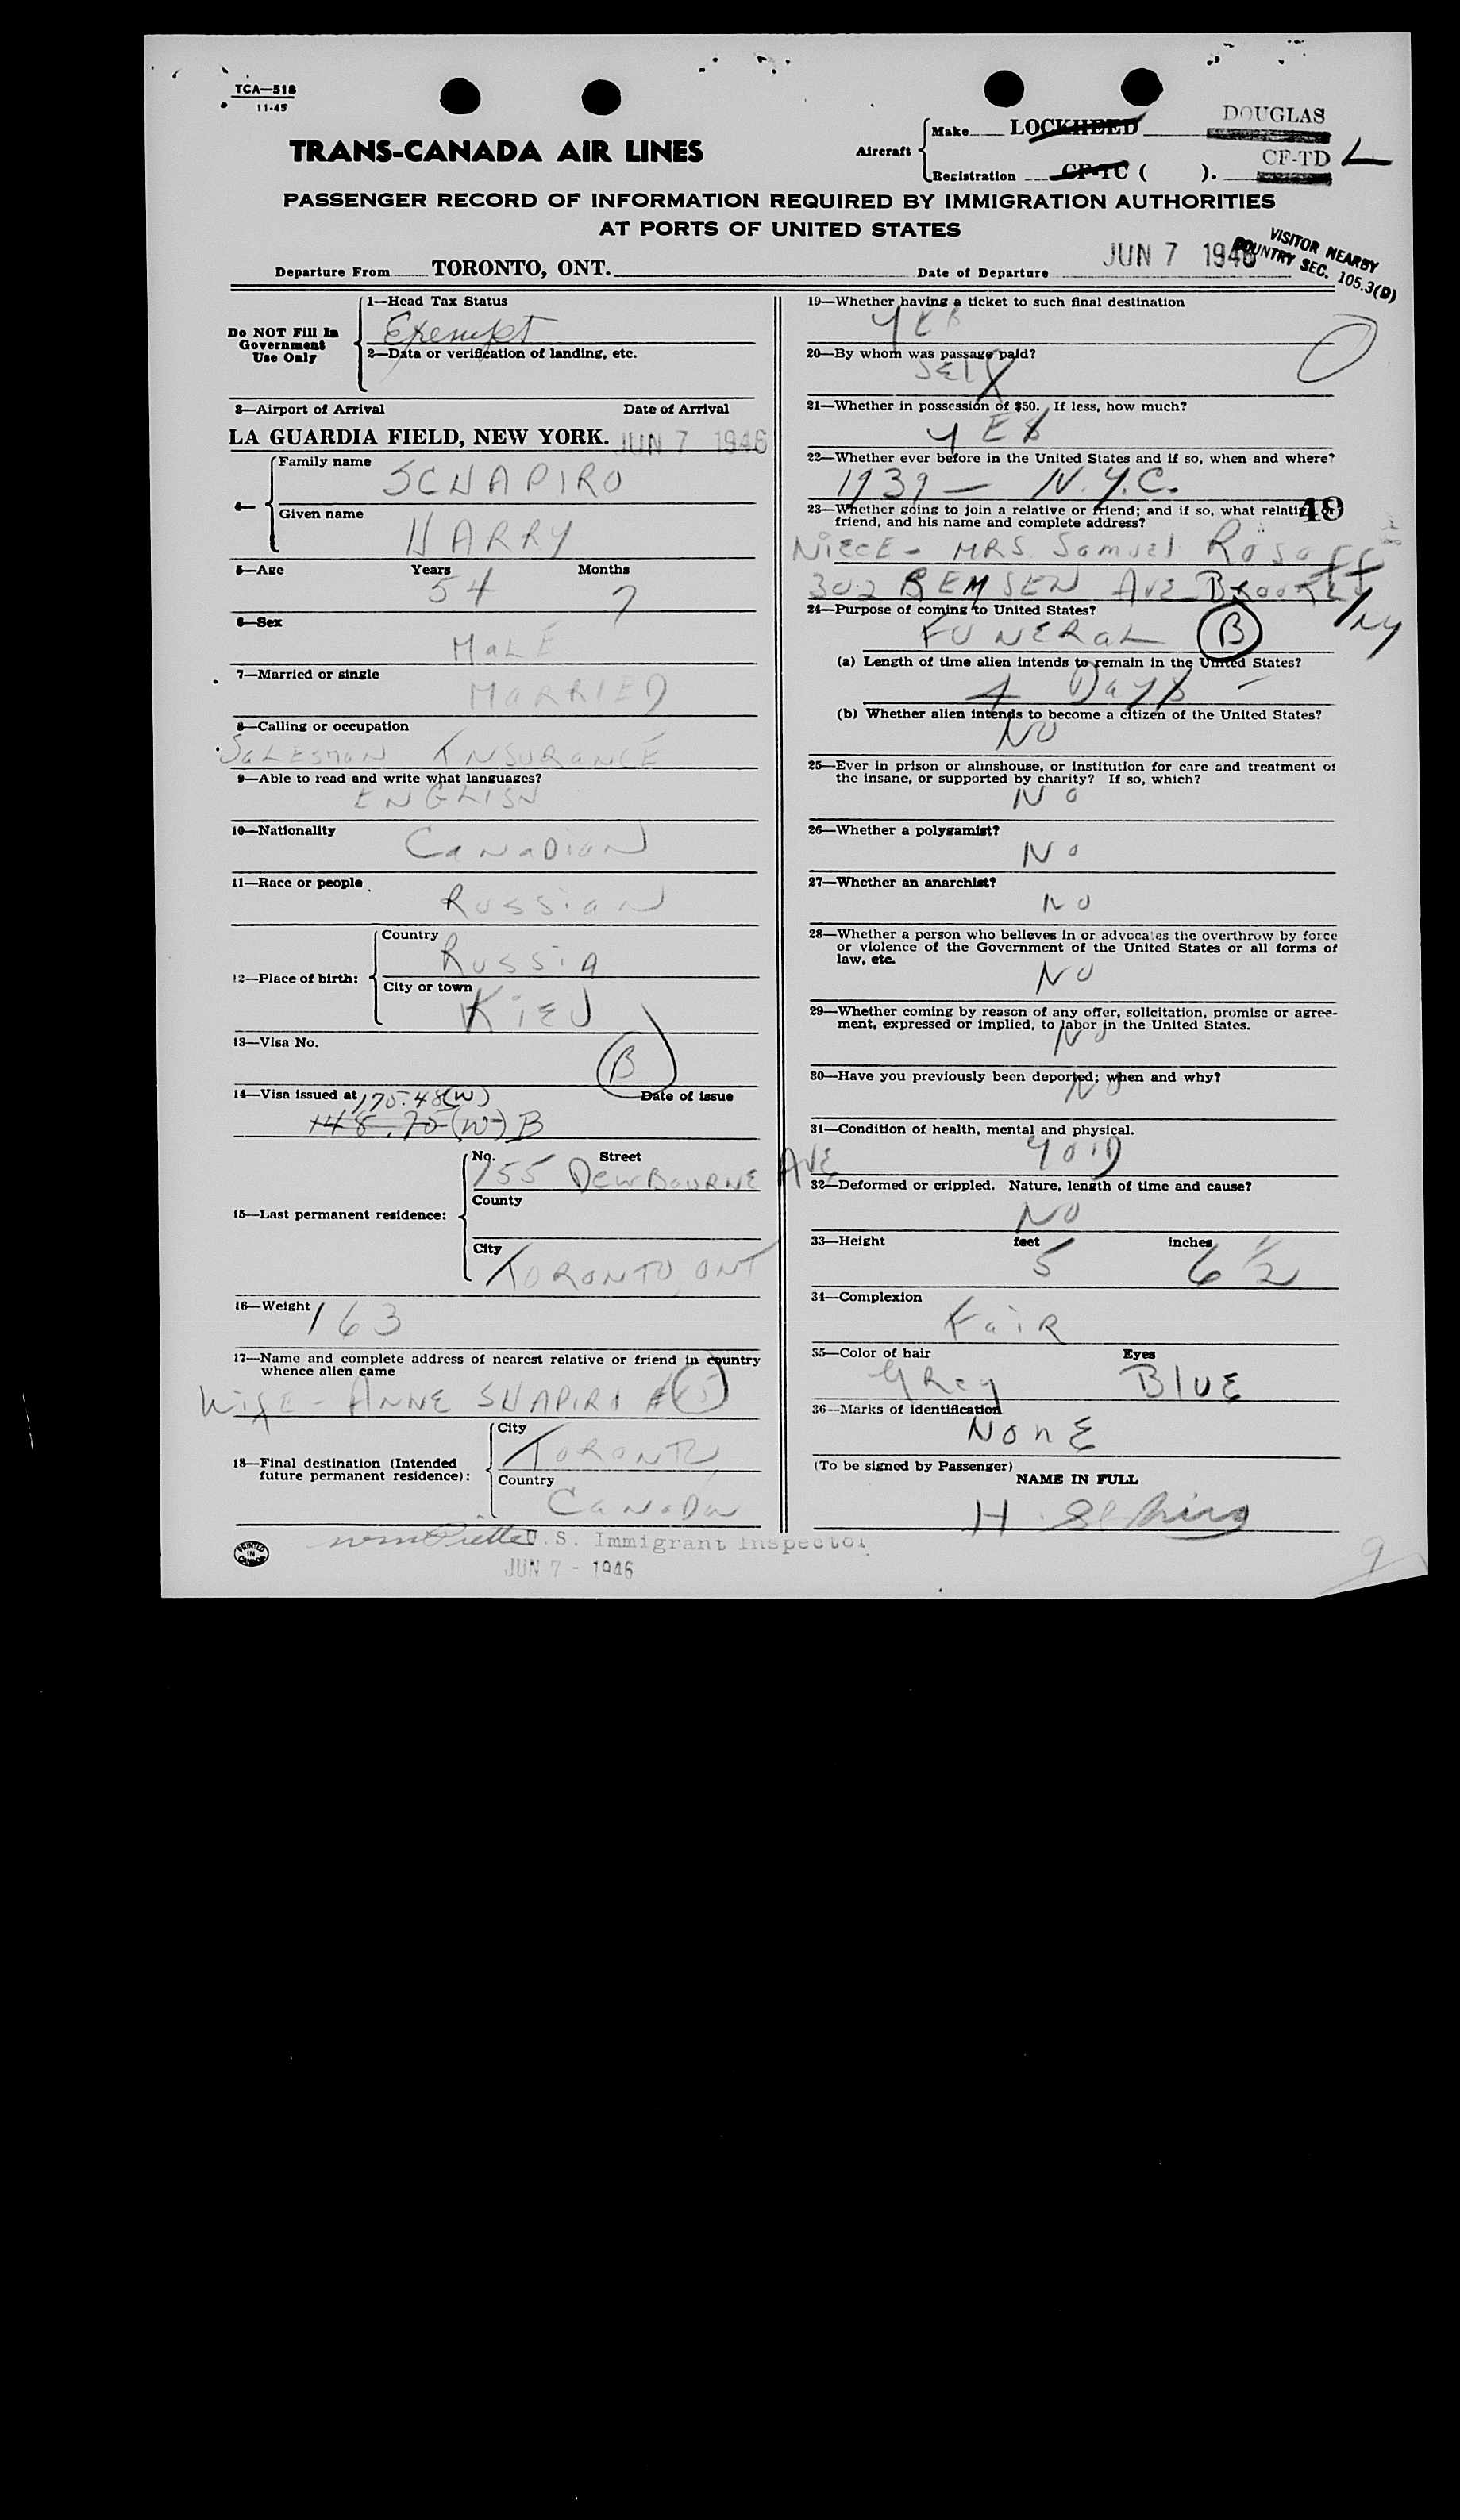 TCA—518
11-45
TRANS-CANADA AIR LINES
Aircraft
Make LOCKHEED DOUGLAS
Registration CF-TC ( ). CF-TD L
PASSENGER RECORD OF INFORMATION REQUIRED BY IMMIGRATION AUTHORITIES
AT PORTS OF UNITED STATES
VISITOR NEARBY
COUNTRY SEC. 105.3(D)
Departure From TORONTO, ONT. Date of Departure JUN 7 1946
Do NOT Fill In
Government
Use Only
1—Head Tax Status
Exempt
2—Data or verification of landing, etc.
3—Airport of Arrival Date of Arrival
LA GUARDIA FIELD, NEW YORK. JUN 7 1946
4—
Family name SCHAPIRO
Given name HARRY
5—Age Years 54 Months 7
6—Sex
MALE
7—Married or single
MARRIED
8—Calling or occupation
SALESMAN INSURANCE
9—Able to read and write what languages?
ENGLISH
10—Nationality
CANADIAN
11—Race or people
RUSSIAN
12—Place of birth:
Country
RUSSIA
City or town
KIEV
13—Visa No.
B
14—Visa issued at 175.48(W) Date of issue
148.75(W) B
15—Last permanent residence:
No. Street
155 DEWBOURNE AVE
County
City
TORONTO ONT
16—Weight 163
17—Name and complete address of nearest relative or friend in country
whence alien came
WIFE - ANNE SHAPIRO #15
18—Final destination (Intended
future permanent residence):
City
TORONTO
Country
CANADA
U.S. Immigrant Inspector
JUN 7 - 1946
PRINTED
IN
CANADA
19—Whether having a ticket to such final destination
YES
20—By whom was passage paid?
SELF
21—Whether in possession of $50. If less, how much?
YES
22—Whether ever before in the United States and if so, when and where?
1939 — N.Y.C.
23—Whether going to join a relative or friend; and if so, what relative or
friend, and his name and complete address?
49
NIECE - MRS Samuel Rosoff
302 REMSEN AVE BROOKLYN NY
24—Purpose of coming to United States?
FUNERAL B
(a) Length of time alien intends to remain in the United States?
4 DAYS
(b) Whether alien intends to become a citizen of the United States?
NO
25—Ever in prison or almshouse, or institution for care and treatment of
the insane, or supported by charity? If so, which?
NO
26—Whether a polygamist?
NO
27—Whether an anarchist?
NO
28—Whether a person who believes in or advocates the overthrow by force
or violence of the Government of the United States or all forms of
law, etc.
NO
29—Whether coming by reason of any offer, solicitation, promise or agree-
ment, expressed or implied, to labor in the United States.
NO
30—Have you previously been deported; when and why?
NO
31—Condition of health, mental and physical.
GOOD
32—Deformed or crippled. Nature, length of time and cause?
NO
33—Height feet 5 inches 6 1/2
34—Complexion
FAIR
35—Color of hair Eyes
GREY BLUE
36—Marks of identification
NONE
(To be signed by Passenger)
NAME IN FULL
H. Schapiro
9